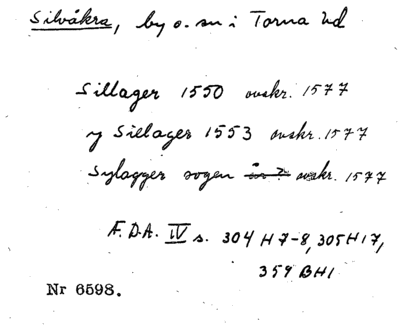 Silvåkra, by o. sn i Torna hd
Sillager 1550 avskr. 1577
y Sillager 1553 avskr. 1577
Sylagger sogen avskr. 1577
Æ.D.A. IV s. 304 H 7-8, 305 H 17,
359 BH1
Nr 6598.